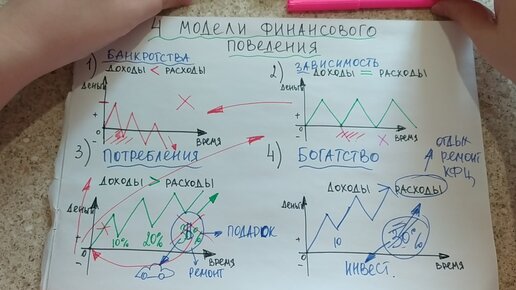 4 МОДЕЛИ ФИНАНСОВОГО
ПОВЕДЕНИЯ
1) БАНКРОТСТВА
ДОХОДЫ < РАСХОДЫ
ДЕНЬГИ
+
0
-
ВРЕМЯ
2) ЗАВИСИМОСТЬ
ДОХОДЫ = РАСХОДЫ
ДЕНЬГИ
+
0
-
ВРЕМЯ
3) ПОТРЕБЛЕНИЯ
ДОХОДЫ > РАСХОДЫ
ДЕНЬГИ
+
0
-
10% 20%
ПОДАРОК
РЕМОНТ
ВРЕМЯ
4) БОГАТСТВО
ОТДЫХ
РЕМОНТ
КФЦ
ДОХОДЫ > РАСХОДЫ
ДЕНЬГИ
+
0
-
10 30%
ИНВЕСТ.
ВРЕМЯ